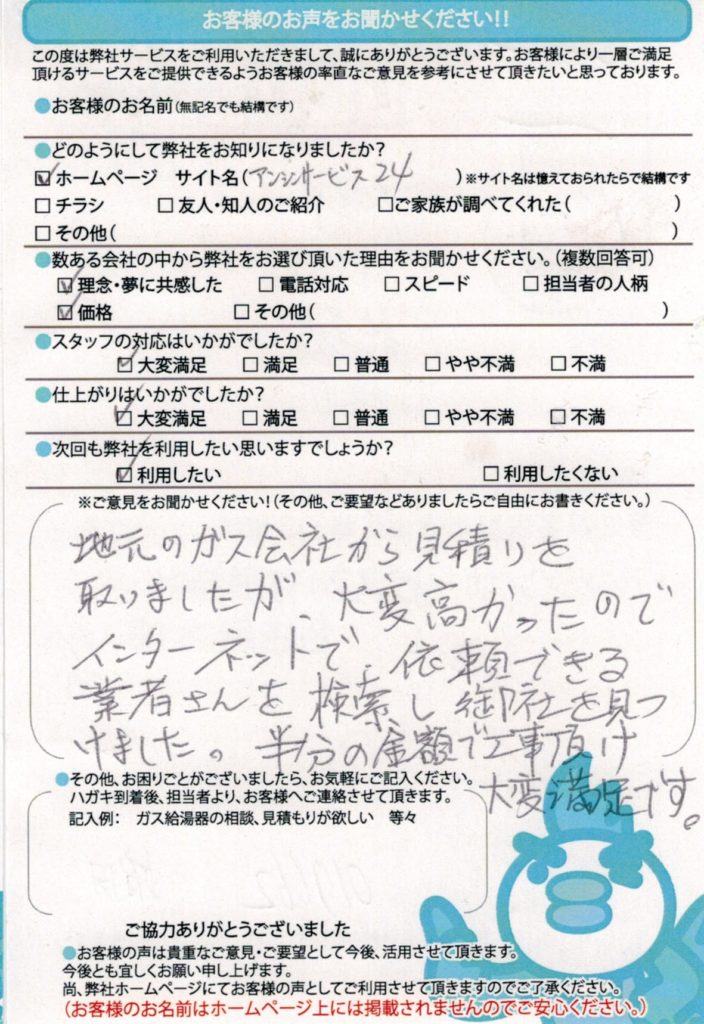 お客様のお声をお聞かせください!!
この度は弊社サービスをご利用いただきまして、誠にありがとうございます。お客様により一層ご満足
頂けるサービスをご提供できるようお客様の率直なご意見を参考にさせて頂きたいと思っております。
●お客様のお名前(無記名でも結構です)
●どのようにして弊社をお知りになりましたか?
☑ホームページ サイト名(アンシンサービス24)※サイト名は憶えておられたらで結構です
□チラシ □友人・知人のご紹介 □ご家族が調べてくれた( )
□その他( )
●数ある会社の中から弊社をお選び頂いた理由をお聞かせください。(複数回答可)
☑理念・夢に共感した □電話対応 □スピード □担当者の人柄
☑価格 □その他( )
●スタッフの対応はいかがでしたか?
☑大変満足 □満足 □普通 □やや不満 □不満
●仕上がりはいかがでしたか?
☑大変満足 □満足 □普通 □やや不満 □不満
●次回も弊社を利用したい思いますでしょうか?
☑利用したい □利用したくない
※ご意見をお聞かせください!(その他、ご要望などありましたらご自由にお書きください。)
地元のガス会社から見積りを
取りましたが、大変高かったので
インターネットで、依頼できる
業者さんを検索し御社を見つ
けました。半分の金額で工事頂け
大変満足です。
●その他、お困りごとがございましたら、お気軽にご記入ください。
ハガキ到着後、担当者より、お客様へご連絡させて頂きます。
記入例: ガス給湯器の相談、見積もりが欲しい 等々
ご協力ありがとうございました
●お客様の声は貴重なご意見・ご要望として今後、活用させて頂きます。
今後とも宜しくお願い申し上げます。
尚、弊社ホームページにてお客様の声としてご利用させて頂きますのでご了承ください。
(お客様のお名前はホームページ上には掲載されませんのでご安心ください。)